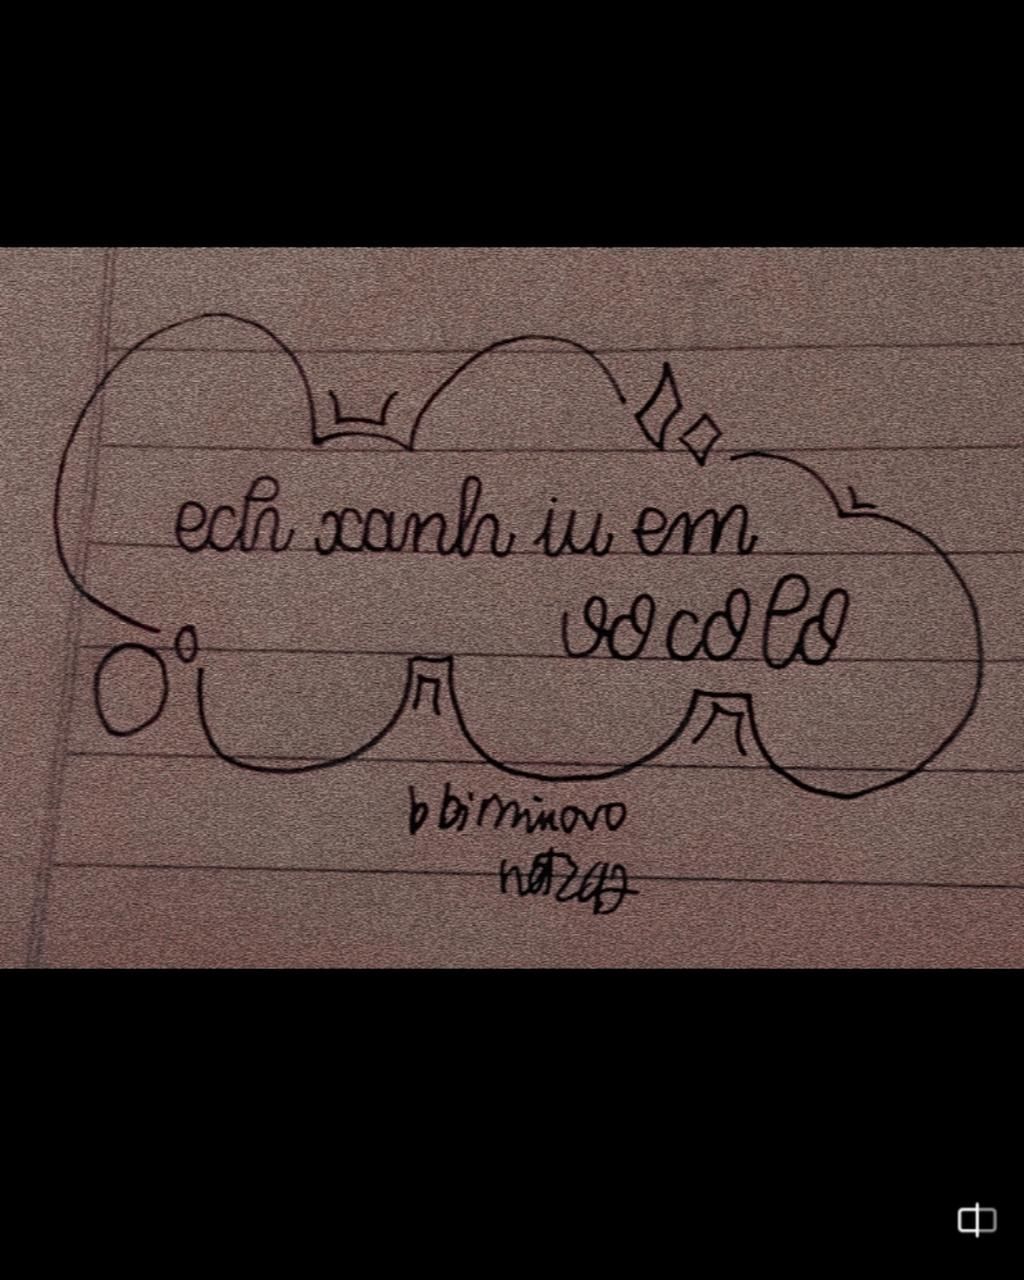 ech xanh iu em
socolo
b bi minovo